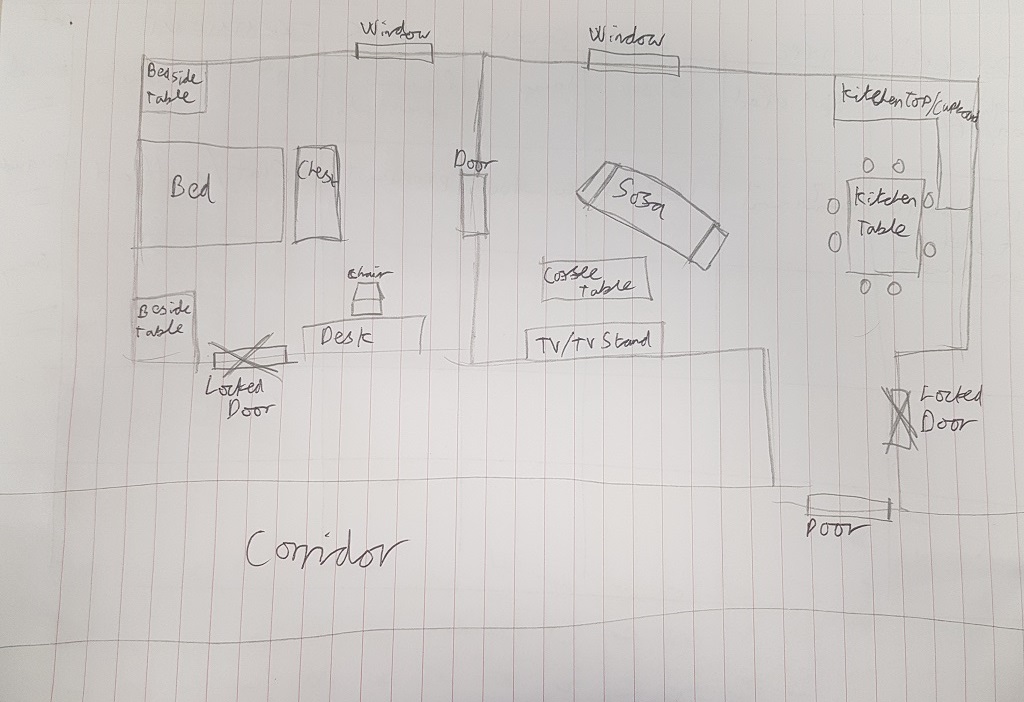 Window
Window
Bedside
Table
Kitchen Top/Cupboard
Door
Chest
Bed
Sofa
Kitchen
Table
Chair
Coffee
Table
Beside
Table
Desk
TV/TV Stand
Locked
Door
Locked
Door
Door
Corridor